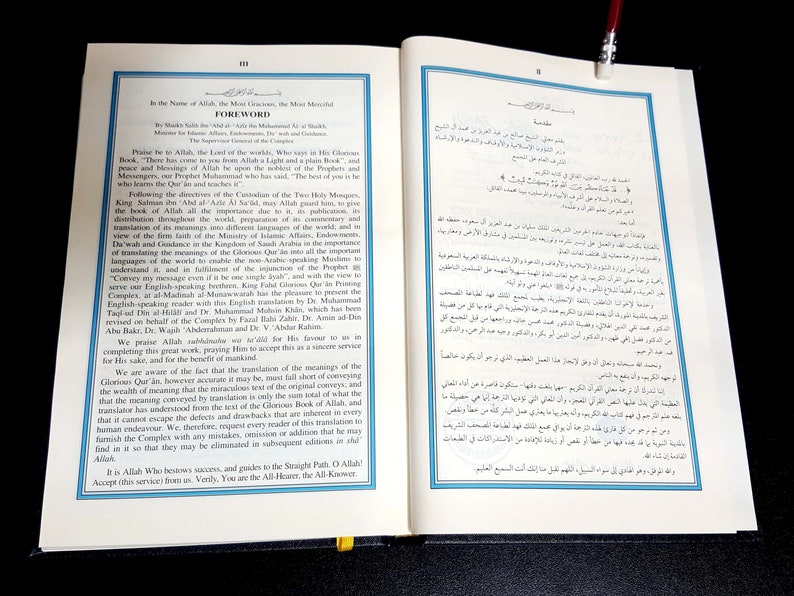 III
In the Name of Allah, the Most Gracious, the Most Merciful
FOREWORD
By Shaikh Salih ibn ‘Abd al-‘Azîz ibn Muhammad Âl-‘al Shaikh,
Minister for Islamic Affairs, Endowments, Da‘wah and Guidance.
The Supervisor General of the Complex.
Praise be to Allah, the Lord of the worlds, Who says in His Glorious
Book, “There has come to you from Allah a Light and a plain Book”, and
peace and blessings of Allah be upon the noblest of the Prophets and
Messengers, our Prophet Muhammad who has said, “The best of you is he
who learns the Qur’ân and teaches it”.
Following the directives of the Custodian of the Two Holy Mosques,
King Salman ibn ‘Abd al-‘Azîz Âl Sa‘ûd, may Allah guard him, to give
the book of Allah all the importance due to it, its publication, its
distribution throughout the world, preparation of its commentary and
translation of its meanings into different languages of the world; and in
view of the firm faith of the Ministry of Islamic Affairs, Endowments,
Da‘wah and Guidance in the Kingdom of Saudi Arabia in the importance
of translating the meanings of the Glorious Qur’ân into all the important
languages of the world to enable the non-Arabic-speaking Muslims to
understand it, and in fulfilment of the injunction of the Prophet ﷺ
“Convey my message even if it be one single âyah”, and with the view to
serve our English-speaking brethren, King Fahd Glorious Qur’ân Printing
Complex, at al-Madinah al-Munawwarah has the pleasure to present the
English-speaking reader with this English translation by Dr. Muhammad
Taqî-ud Dîn al-Hilâlî and Dr. Muhammad Muhsin Khân, which has been
revised on behalf of the Complex by Fazal Ilahi Zahîr, Dr. Amin ad-Dîn
Abu Bakr, Dr. Wajih ‘Abderrahman and Dr. V.‘Abdur Rahim.
We praise Allah subhânahu wa ta‘âlâ for His favour to us in
completing this great work, praying Him to accept this as a sincere service
for His sake, and for the benefit of mankind.
We are aware of the fact that the translation of the meanings of the
Glorious Qur’ân, however accurate it may be, must fall short of conveying
the wealth of meaning that the miraculous text of the original conveys; and
that the meaning conveyed by translation is only the sum total of what the
translator has understood from the text of the Glorious Book of Allah, and
that it cannot escape the defects and drawbacks that are inherent in every
human endeavour. We, therefore, request every reader of this translation to
furnish the Complex with any mistakes, omission or addition that he may
find in it so that they may be eliminated in subsequent editions in shâ’
Allah.
It is Allah Who bestows success, and guides to the Straight Path. O Allah!
Accept (this service) from us. Verily, You are the All-Hearer, the All-Knower.
II
مقدمة
بقلم معالي الشيخ صالح بن عبد العزيز بن محمد آل الشيخ
وزير الشؤون الإسلامية والأوقاف والدعوة والإرشاد
المشرف العام على المجمع
الحمد لله رب العالمين، القائل في كتابه الكريم:
والصلاة والسلام على أشرف الأنبياء والمرسلين، نبينا محمد، القائل:
«خيركم من تعلم القرآن وعلَّمه».
أما بعد:
فإنفاذاً لتوجيهات خادم الحرمين الشريفين الملك سلمان بن عبد العزيز آل سعود، حفظه الله
بالعناية بكتاب الله، والعمل على تيسير نشره، وتوزيعه بين المسلمين في مشارق الأرض ومغاربها،
وتفسيره، وترجمة معانيه إلى مختلف لغات العالم.
وإيماناً من وزارة الشؤون الإسلامية والأوقاف والدعوة والإرشاد بالمملكة العربية السعودية
بأهمية ترجمة معاني القرآن الكريم، إلى جميع لغات العالم المهمة تسهيلاً لفهمه على المسلمين الناطقين
بغير العربية، وتحقيقاً للبلاغ المأمور به في قوله ﷺ: «بلغوا عني ولو آية».
وخدمة لإخواننا الناطقين باللغة الإنجليزية، يطيب لمجمع الملك فهد لطباعة المصحف
الشريف بالمدينة المنورة أن يقدم للقارئ الكريم هذه الترجمة الإنجليزية التي قام بها كل من فضيلة
الدكتور محمد تقي الدين الهلالي، وفضيلة الدكتور محمد محسن خان، وراجعها من قبل المجمع كل
من الدكتور فضل إلهي ظهير، والدكتور أمين الدين أبو بكر، والدكتور وجيه عبد الرحمن، والدكتور
ف. عبد الرحيم.
ونحمد الله سبحانه وتعالى أن وفق لإنجاز هذا العمل العظيم، الذي نرجو أن يكون خالصاً
لوجهه الكريم، وأن ينفع به الناس.
إننا لندرك أن ترجمة معاني القرآن الكريم -مهما بلغت دقتها- ستكون قاصرة عن أداء المعاني
العظيمة التي يدل عليها النص القرآني المعجز، وأن المعاني التي تؤديها الترجمة إنما هي حصيلة ما
بلغه علم المترجم في فهم كتاب الله الكريم، وأنه يعتريها ما يعتري عمل البشر كلَّه من خطأ ونقص.
ومن ثم نرجو من كل قارئ لهذه الترجمة أن يوافي مجمع الملك فهد لطباعة المصحف الشريف
بالمدينة النبوية بما قد يجده فيها من خطأ أو نقص أو زيادة للإفادة من الاستدراكات في الطبعات
القادمة إن شاء الله.
والله الموفق، وهو الهادي إلى سواء السبيل، اللهم تقبل منا إنك أنت السميع العليم.